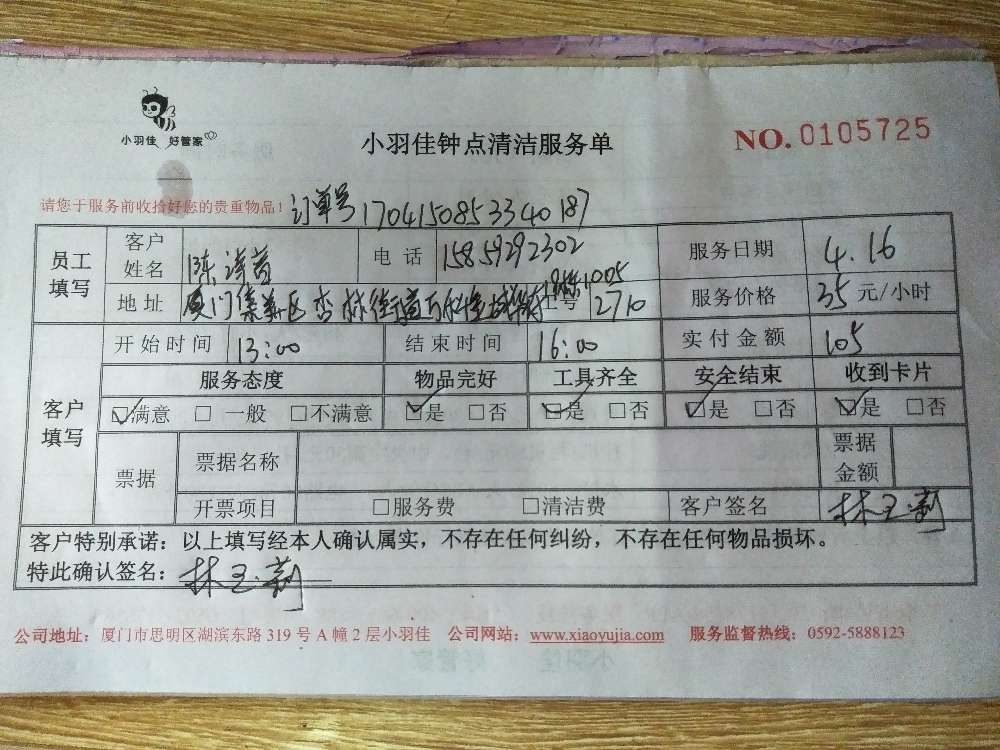 小羽佳 好管家
小羽佳钟点清洁服务单
NO. 0105725
请您于服务前收拾好您的贵重物品！ 订单号 1704150853340187
员工填写 客户姓名 陈 电话 15859292302 服务日期 4.16
地址 厦门集美区杏林街道万科 1005 工号 2710 服务价格 35 元/小时
客户填写 开始时间 13:00 结束时间 16:00 实付金额 105
服务态度 物品完好 工具齐全 安全结束 收到卡片
☑满意 □ 一般 □不满意 ☑是 □否 ☑是 □否 ☑是 □否 ☑是 □否
票据 票据名称 票据金额
开票项目 □服务费 □清洁费 客户签名 林玉莉
客户特别承诺：以上填写经本人确认属实，不存在任何纠纷，不存在任何物品损坏。
特此确认签名：林玉莉
公司地址：厦门市思明区湖滨东路 319 号 A 幢 2 层小羽佳 公司网站：www.xiaoyujia.com 服务监督热线：0592-5888123